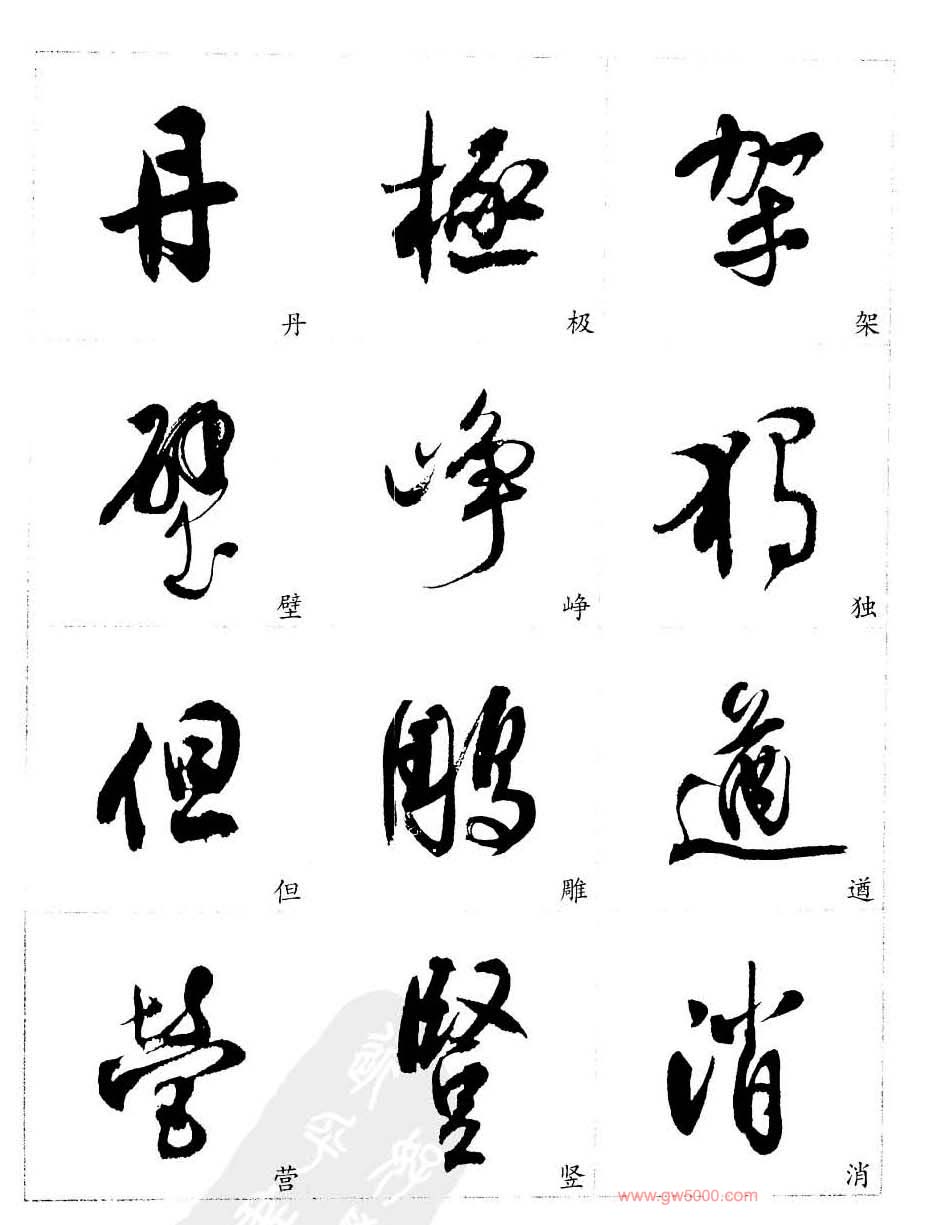 丹 極 架
丹 极 架
壁 峥 獨
壁 峥 独
但 鵰 遒
但 雕 遒
營 豎 消
营 竖 消
www.gw5000.com